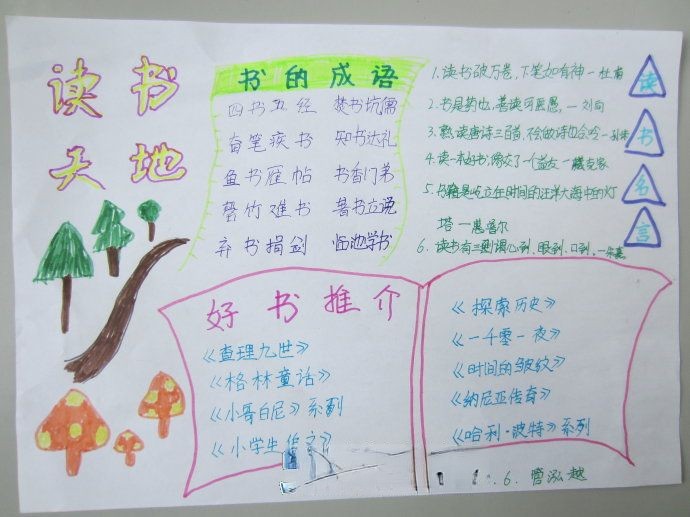 读书
天地
书的成语
四书五经 焚书坑儒
奋笔疾书 知书达礼
鱼书雁帖 书香门弟
罄竹难书 著书立说
弃书捐剑 临池学书
读书名言
1.读书破万卷，下笔如有神一杜甫
2.书是药也，善读可医愚，一刘向
3.熟读唐诗三百首，不会做诗也会吟一孙洙
4.读一本好书，像交了一个益友一臧克家
5.书籍是屹立在时间的汪洋大海中的灯
塔一惠普尔
6.读书有三到谓心到、眼到、口到，一朱熹
好书推介
《查理九世》
《格林童话》
《小哥白尼》系列
《小学生作文》
《探索历史》
《一千零一夜》
《时间的皱纹》
《纳尼亚传奇》
《哈利·波特》系列
.6.曾泓越